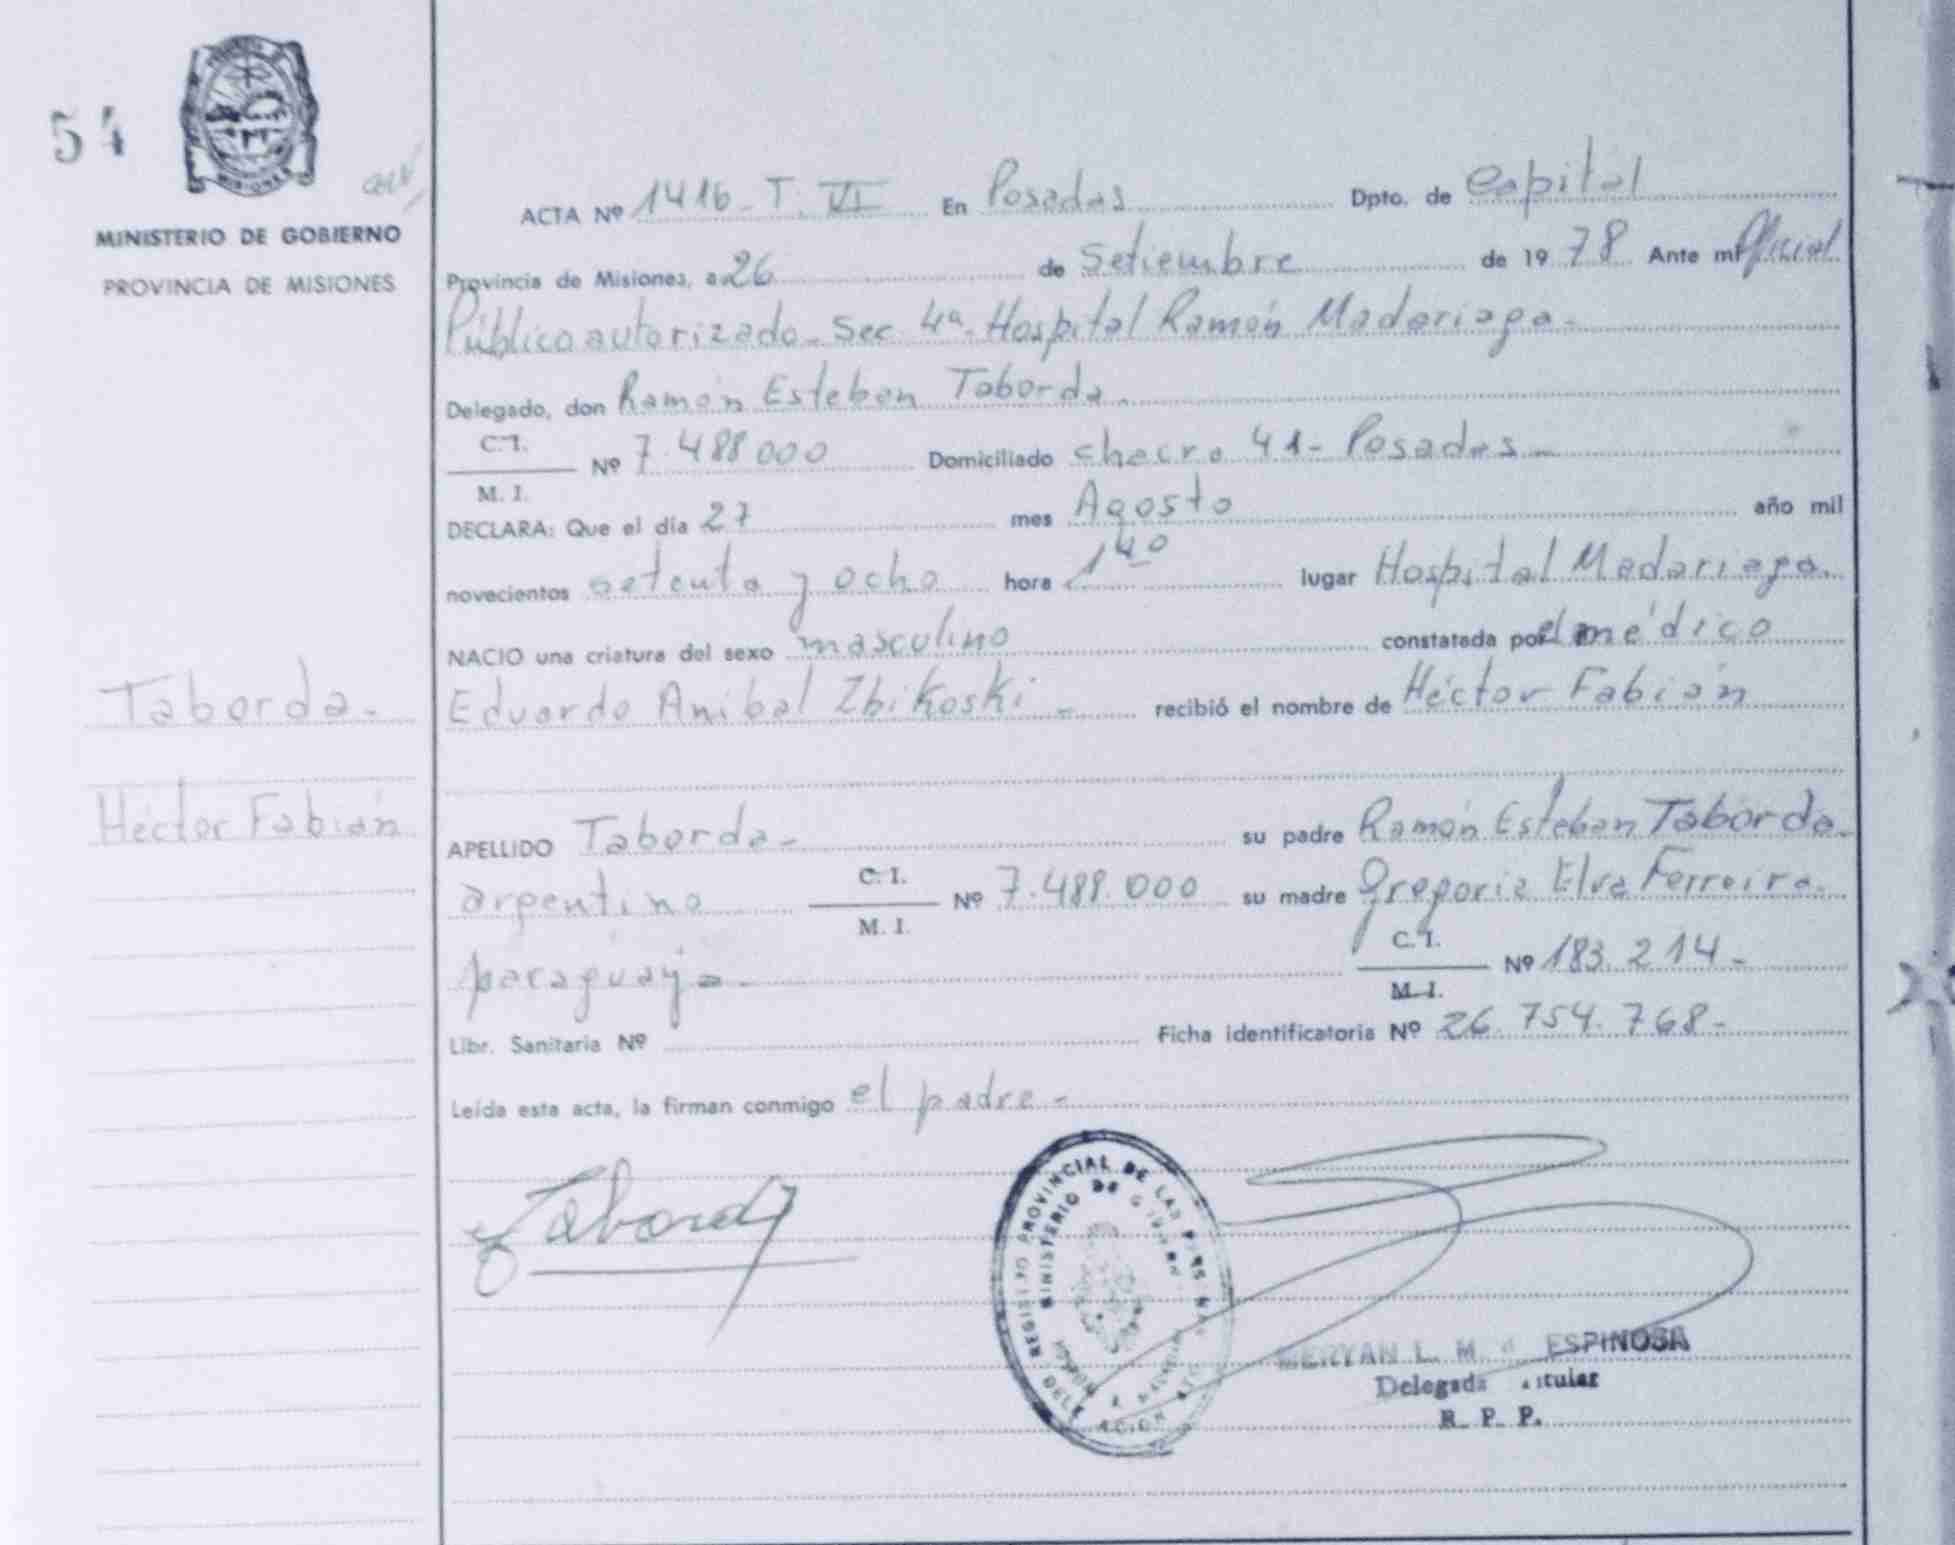 54
MISIONES
MINISTERIO DE GOBIERNO
PROVINCIA DE MISIONES
Taborda.
Héctor Fabián
ACTA Nº 1416 - T. VI En Posadas Dpto. de Capital
Provincia de Misiones, a 26 de Setiembre de 1978 Ante mí Oficial
Público autorizado - Sec. 4ª - Hospital Ramón Madariaga -
Delegado, don Ramón Esteban Taborda -
C.I.
Nº 7.488.000 Domiciliado checra 41 - Posadas -
M. I.
DECLARA: Que el día 27 mes Agosto año mil
novecientos setenta y ocho hora 1 40 lugar Hospital Madariaga.
NACIO una criatura del sexo masculino constatada por el médico
Eduardo Anibal Zbikoski - recibió el nombre de Héctor Fabián
APELLIDO Taborda - su padre Ramón Esteban Taborda -
argentino C. I. Nº 7.488.000 su madre Gregoria Elva Ferreira -
M. I.
paraguaya - C. I. Nº 183.214 -
M. I.
Libr. Sanitaria Nº Ficha identificatoria Nº 26.754.768 -
Leída esta acta, la firman conmigo el padre -
Taborda
REGISTRO PROVINCIAL DE LAS PERSONAS
MINISTERIO DE GOBIERNO
MERYAN L. M. d ESPINOSA
Delegada Titular
R. P. P.